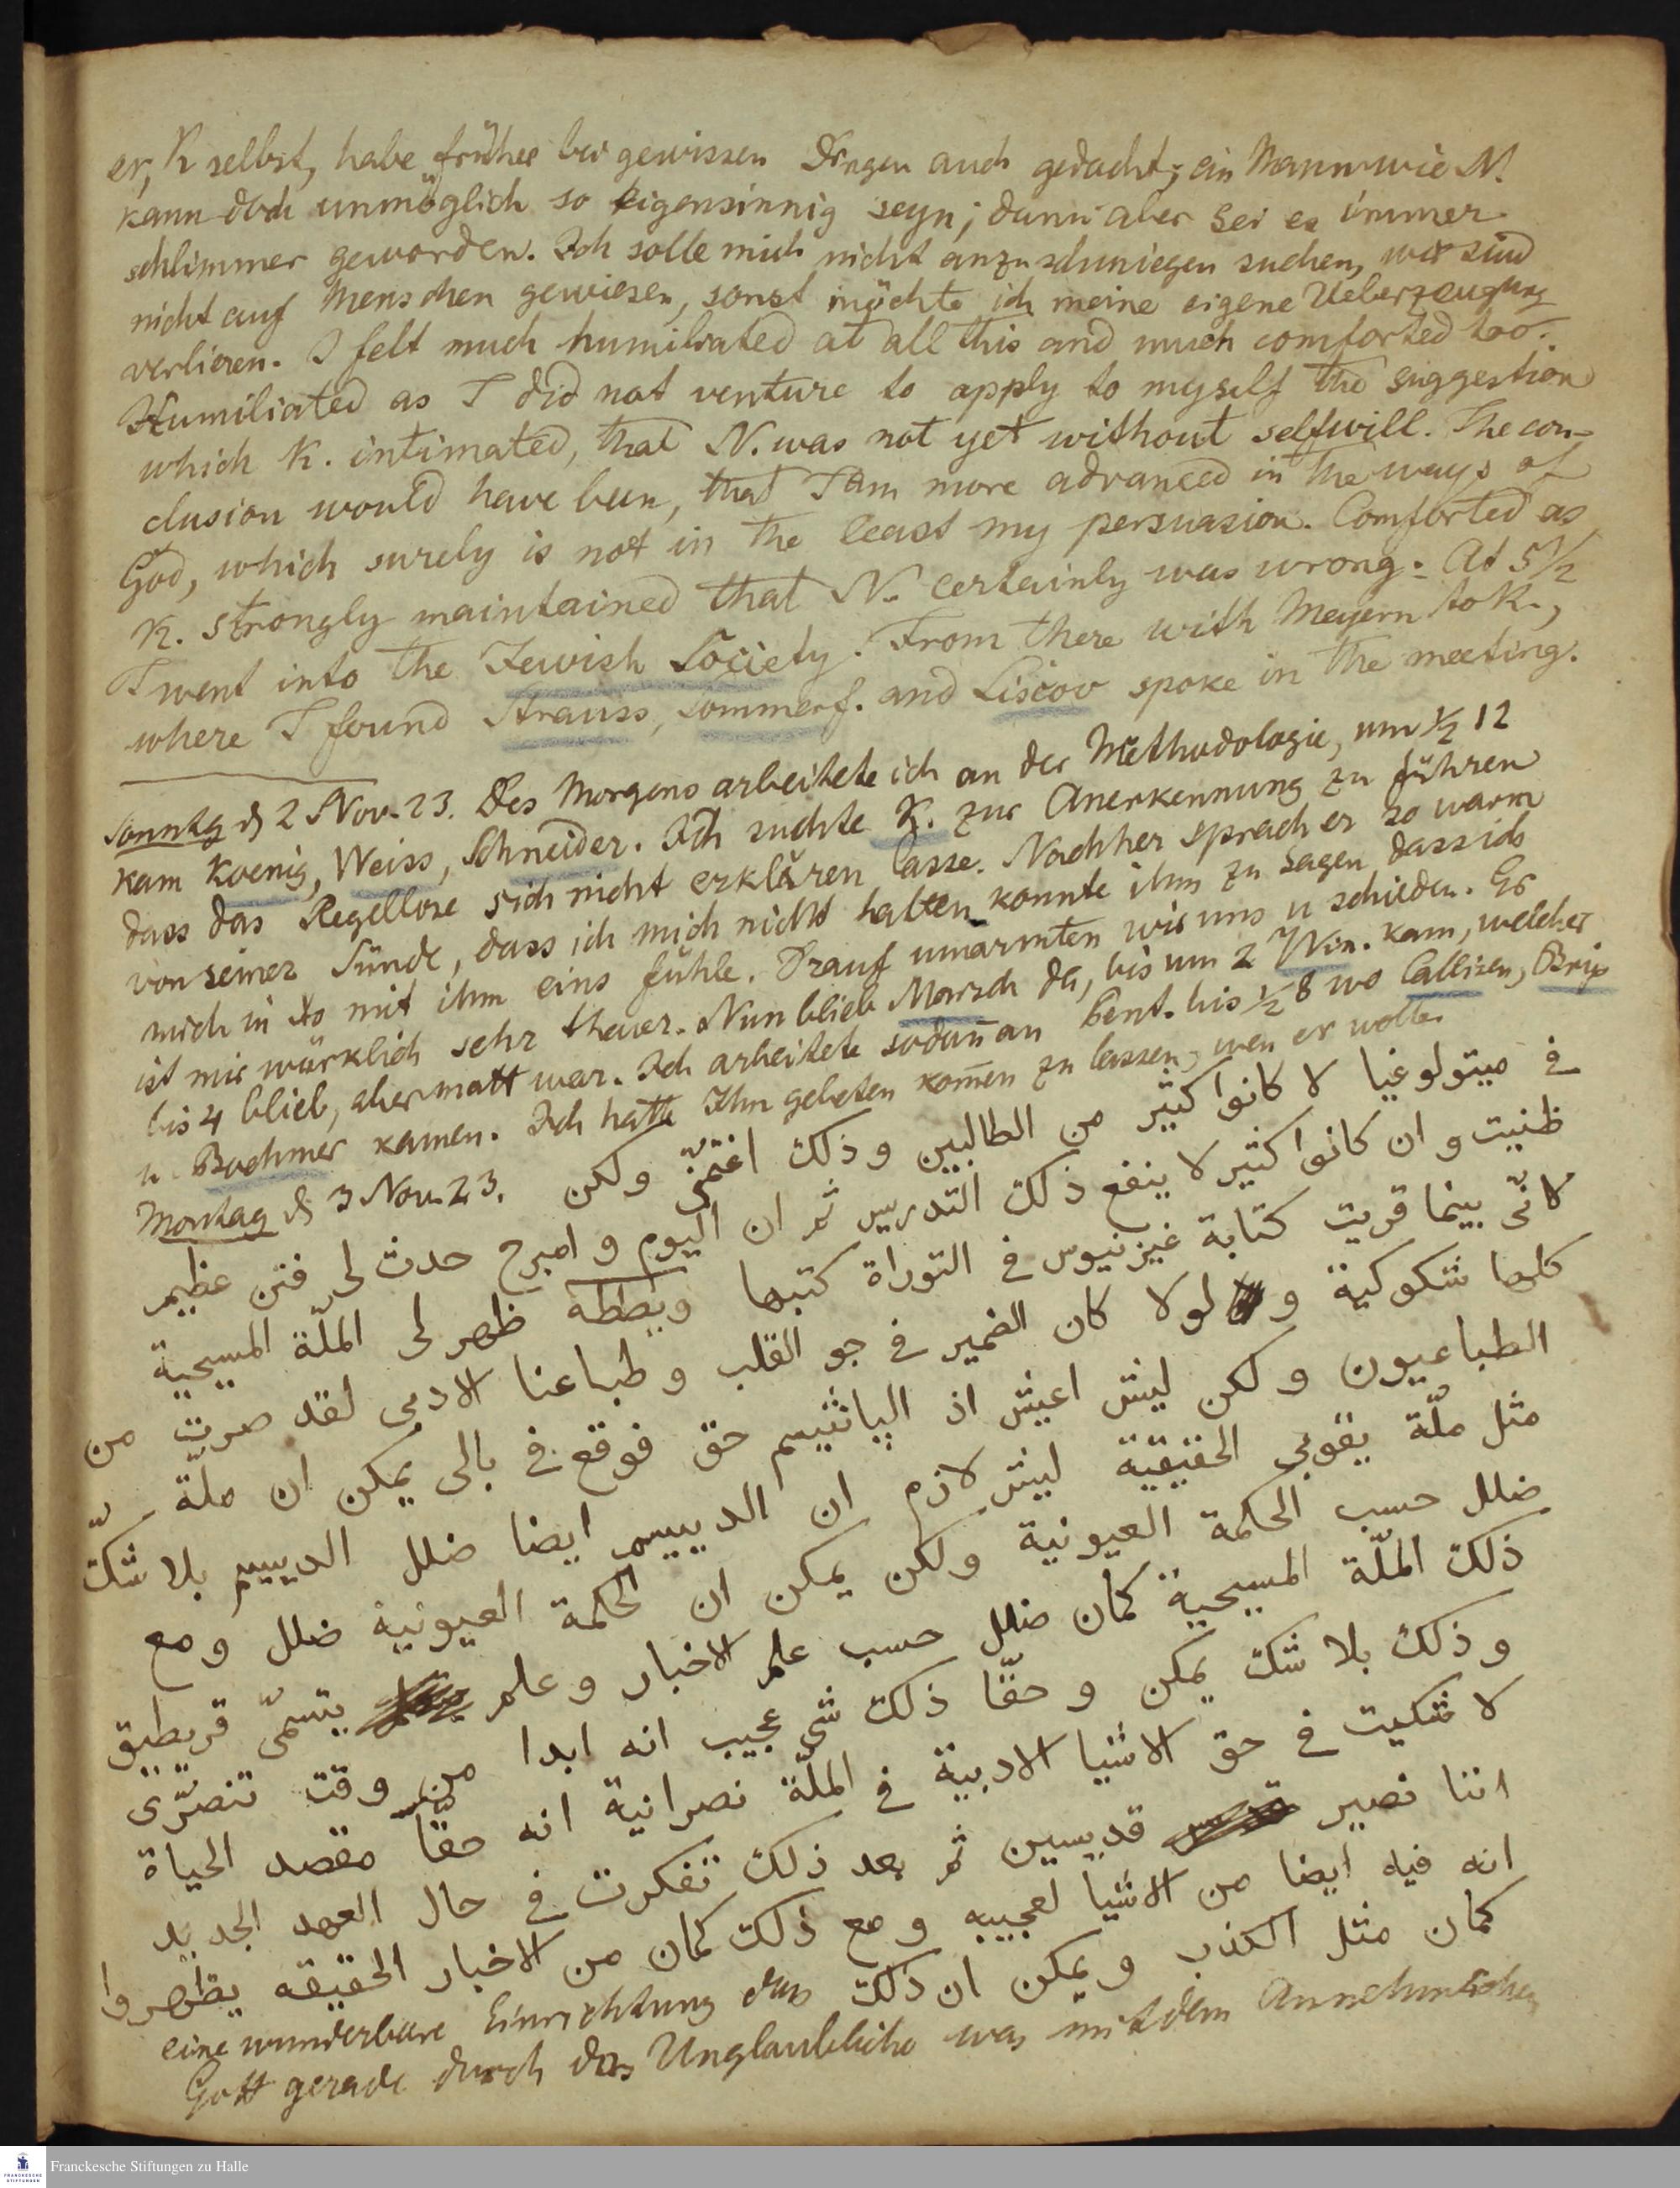 er, K selbst, habe früher bei gewissen Dingen auch gedacht, ein Mann wie N.
kann doch unmöglich so eigensinnig seyn; dann aber sei es immer
schlimmer geworden. Ich solle mich nicht anzuschmiegen suchen, wir sind
nicht auf Menschen gewiesen, sonst möchte ich meine eigene Ueberzeugung
verlieren. I felt much humiliated at all this and much comforted too.
Humiliated as I did not venture to apply to myself the suggestion
which K. intimated, that N. was not yet without selfwill. The con-
clusion would have been, that I am more advanced in the ways of
God, which surely is not in the least my persuasion. Comforted as
K. strongly maintained that N. certainly was wrong. At 5 1/2
I went into the Jewish Society. From there with Meyern to K.,
where I found Strauss, Sommerf. and Liscov spoke in the meeting.
Sonntag d 2 Nov. 23. Des Morgens arbeitete ich an der Methodologie, um 1/2 12
kam Koenig, Weiss, Schneider. Ich suchte K. zur Anerkennung zu führen
dass das Regellose sich nicht erklären lasse. Nachher sprach er so warm
von seiner Sünde, dass ich mich nicht halten konnte ihm zu sagen dass ich
mich in so mit ihm eins fühle. Drauf umarmten wir uns u schieden. Er
ist mir würklich sehr theuer. Nun blieb Marsch da, bis um 2 Win. kam, welcher
bis 4 blieb, aber matt war. Ich arbeitete sodann an Pent. bis 1/2 8 wo Callisen, Brix
u. Boehmer kamen. Ich hatte Ihn gebeten kommen zu lassen, wen er wolle.
Montag d 3 Nov. 23. في ميتولوغيا لا كانوا كثير من الطالبين وذلك اغتمّني ولكن
ظنيت و ان كانوا كثير لا ينفع ذلك التدريس ثم ان اليوم و امبرح حدث لي فتن عظيم
لانّي بينما قريت كتابة غيزنيوس في التوراة كتبها ظهر لي الملّة المسيحية
كلها شكوكية و لولا كان الضمير في جو القلب و طباعنا الادبى لقد صرت من
الطباعيون و لكن ليش اعيش اذ الپانثيسم حق فوقع في بالي يمكن ان ملّة
مثل ملّة يقوبي الحقيقية ليش لازم ان الديييسم ايضا ضلل الديييسم بلا شكّ
ضلل حسب الحكمة العيونية ولكن يمكن ان الحكمة العيونية ضلل و مع
ذلك الملّة المسيحية كمان ضلل حسب علم الاخبار و علم يتسمّى قريطيق
و ذلك بلا شك يمكن و حقّا ذلك شي عجيب انه ابدا من وقت تنصرّى
لا شكيت في حق الاشيا الادبية في الملّة نصرانية انه حقّا مقصد الحياة
اننا نصير قديسين ثم بعد ذلك تفكرت في حال العهد الجديد
انه فيه ايضا من الاشيا لعجيبه و مع ذلك كمان من الاخبار الحقيقه يظهروا
كمان مثل الكذب و يمكن ان ذلك eine wunderbare Einrichtung dass
Gott gerade durch das Unglaubliche was mit dem Annehmlichen
Franckesche Stiftungen zu Halle